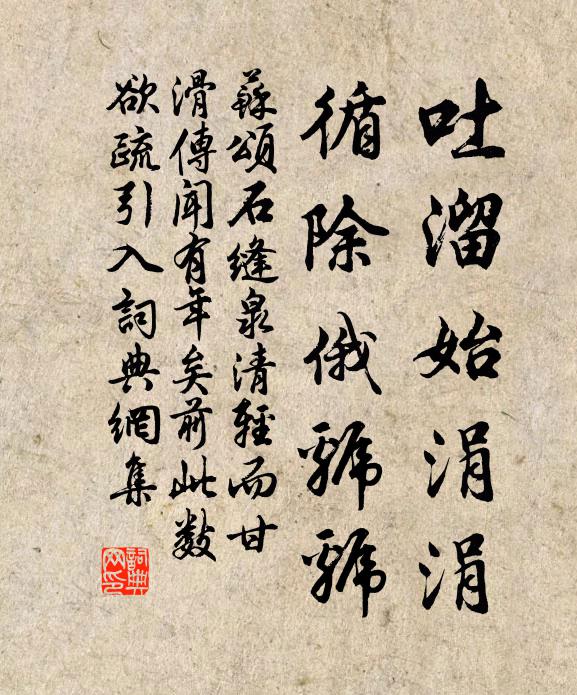 吐溜始涓涓
循除俄虢虢
蘇頌石縫泉清輕而甘
滑傳聞有年矣前此數
欲疏引入詞典網集
詞典网印